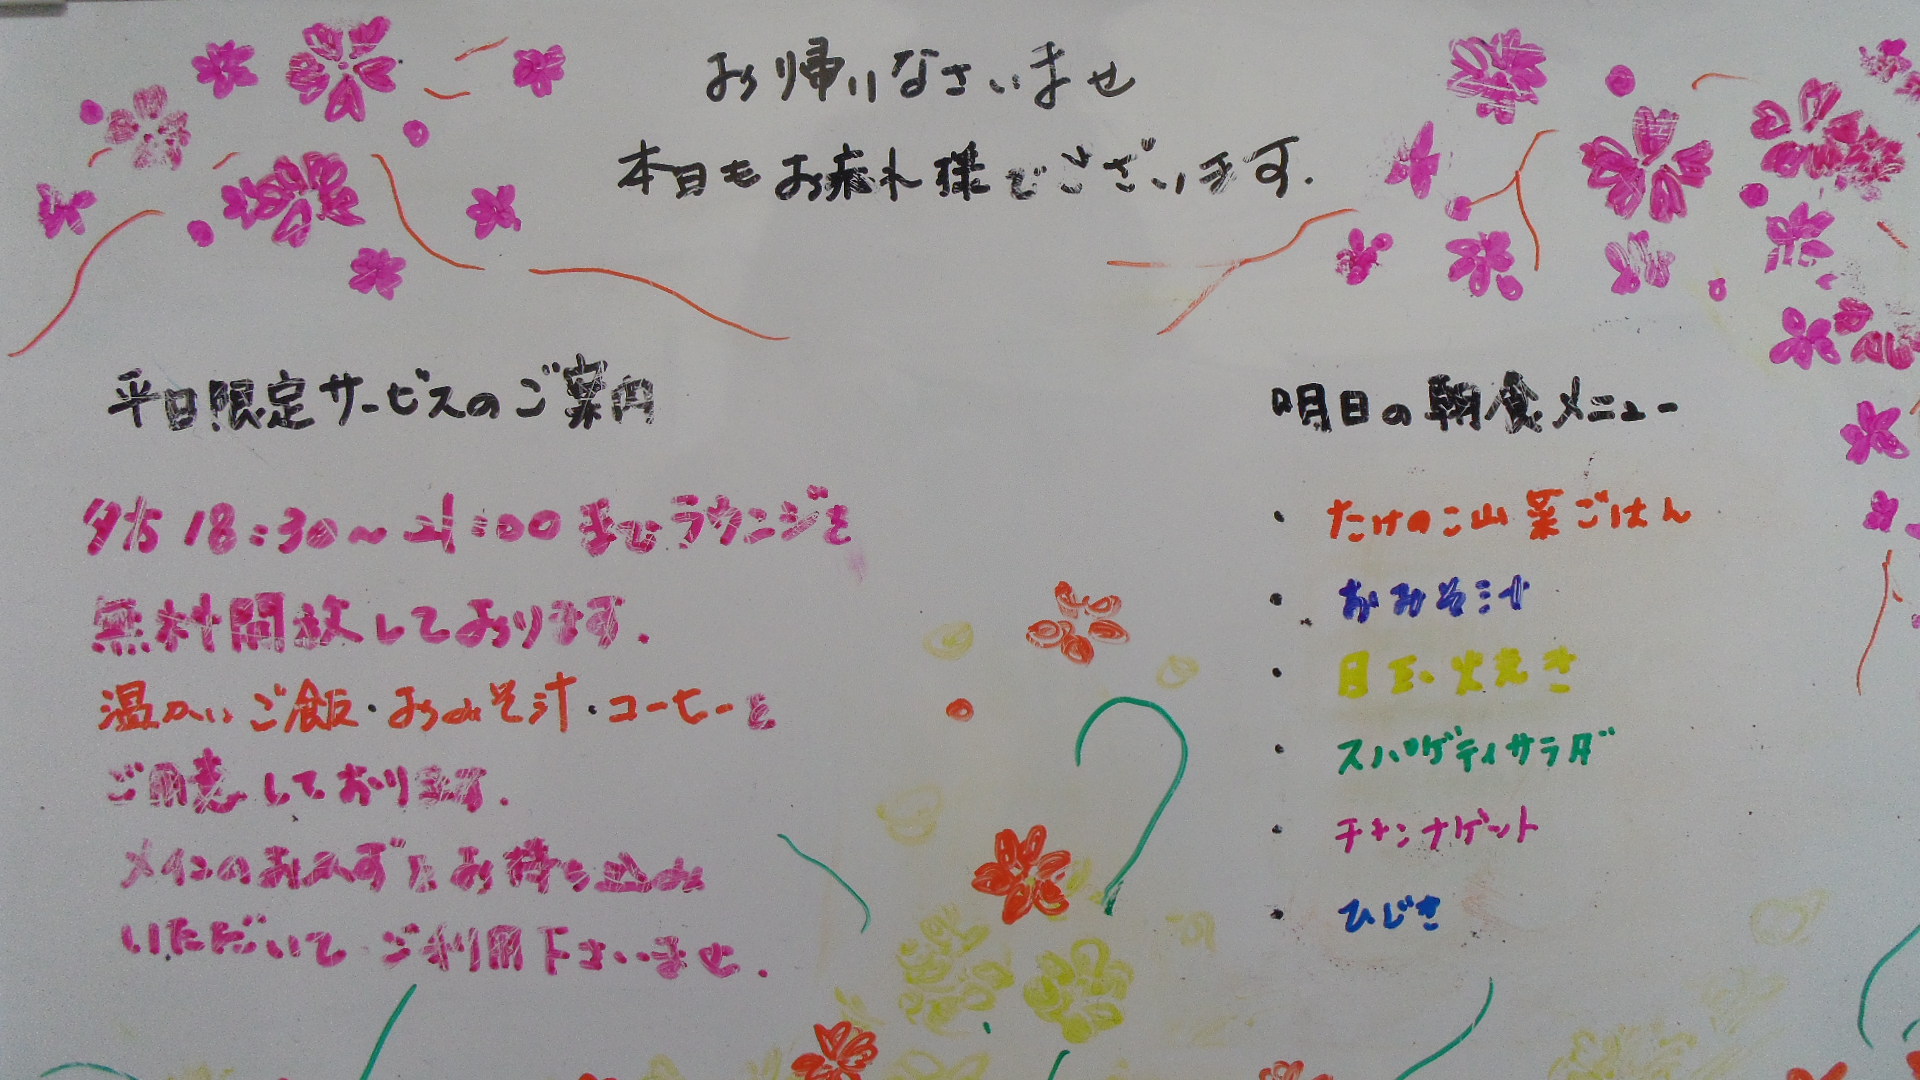 お帰りなさいませ
本日もお疲れ様でございます.
平日限定サービスのご案内
夕方 18:30〜21:00までラウンジを
無料開放しております.
温かいご飯・おみそ汁・コーヒーを
ご用意しております.
メインのおかずをお持ち込み
いただいてご利用下さいませ.
明日の朝食メニュー
・たけのこ山菜ごはん
・おみそ汁
・目玉焼き
・スパゲティサラダ
・チキンナゲット
・ひじき